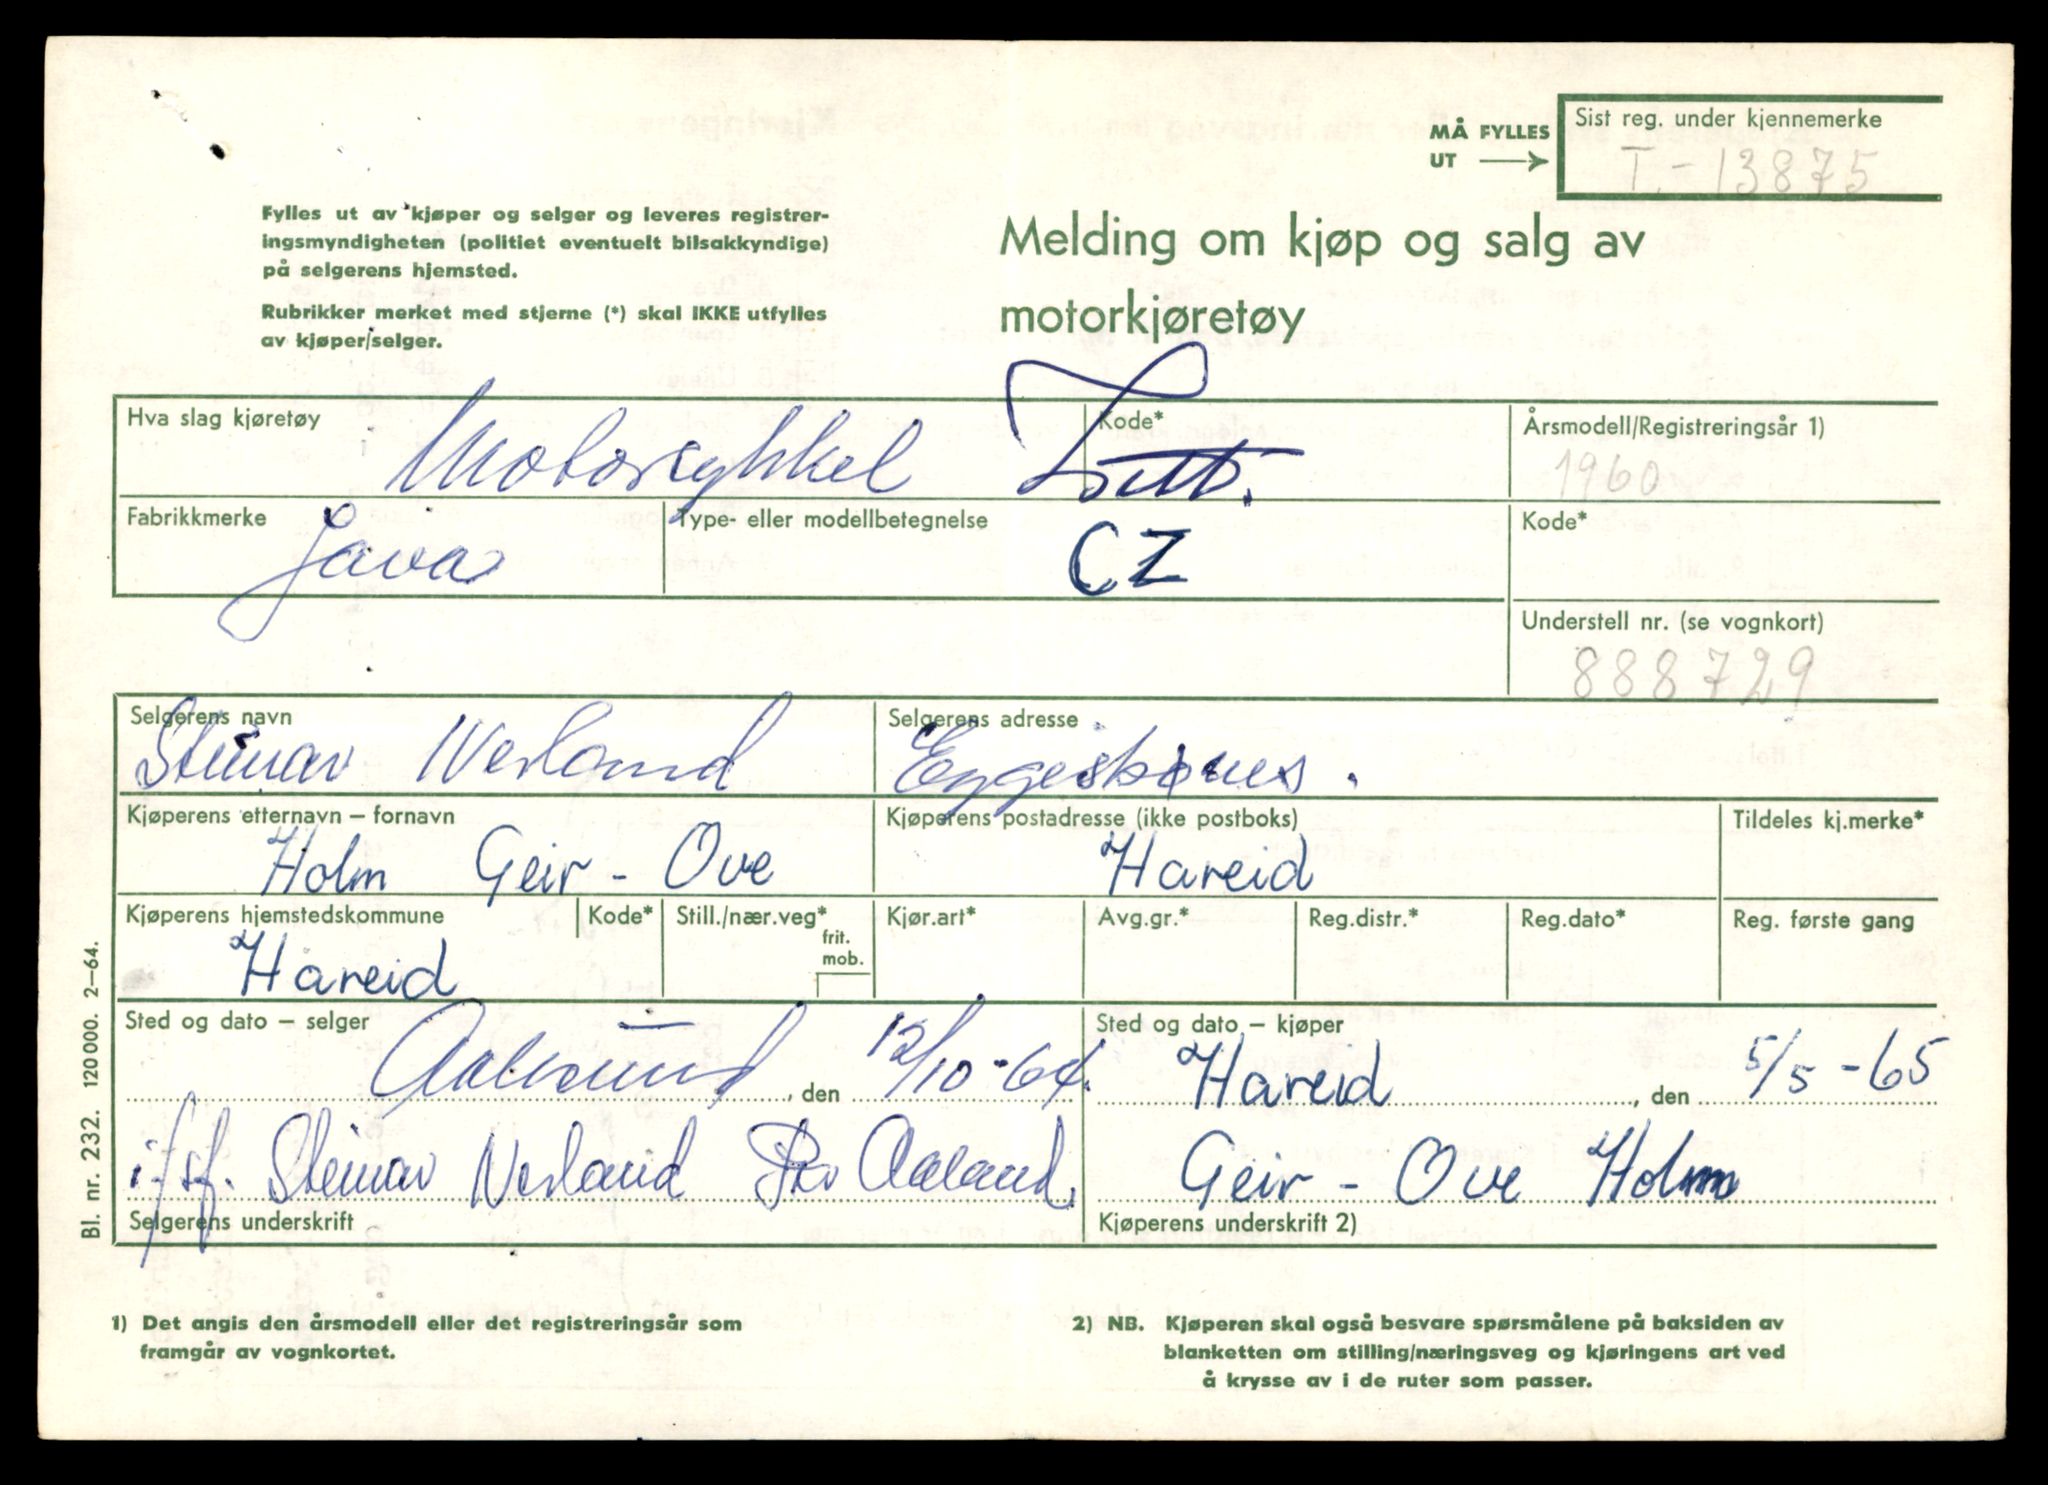 MÅ FYLLES UT
Sist reg. under kjennemerke
T.-13875
Fylles ut av kjøper og selger og leveres registrer-
ingsmyndigheten (politiet eventuelt bilsakkyndige)
på selgerens hjemsted.
Rubrikker merket med stjerne (*) skal IKKE utfylles
av kjøper/selger.
Melding om kjøp og salg av
motorkjøretøy
Hva slag kjøretøy
Motorsykkel
Kode*
Årsmodell/Registreringsår 1)
1960
Fabrikkmerke
Java
Type- eller modellbetegnelse
CZ
Kode*
Understell nr. (se vognkort)
888729
Selgerens navn
Steinar Nerland
Selgerens adresse
Eggesbønes.
Kjøperens etternavn – fornavn
Holm Geir - Ove
Kjøperens postadresse (ikke postboks)
Hareid
Tildeles kj.merke*
Kjøperens hjemstedskommune
Hareid
Kode*
Still./nær.veg*
frit.
mob.
Kjør.art*
Avg.gr.*
Reg.distr.*
Reg.dato*
Reg. første gang
Sted og dato – selger
Aalesund, den 12/10-64.
Sted og dato – kjøper
Hareid, den 5/5-65
i/sf. Steinar Nerland Per Aaland
Selgerens underskrift
Geir - Ove Holm
Kjøperens underskrift 2)
Bl. nr. 232. 120 000. 2–64.
1) Det angis den årsmodell eller det registreringsår som
framgår av vognkortet.
2) NB. Kjøperen skal også besvare spørsmålene på baksiden av
blanketten om stilling/næringsveg og kjøringens art ved
å krysse av i de ruter som passer.